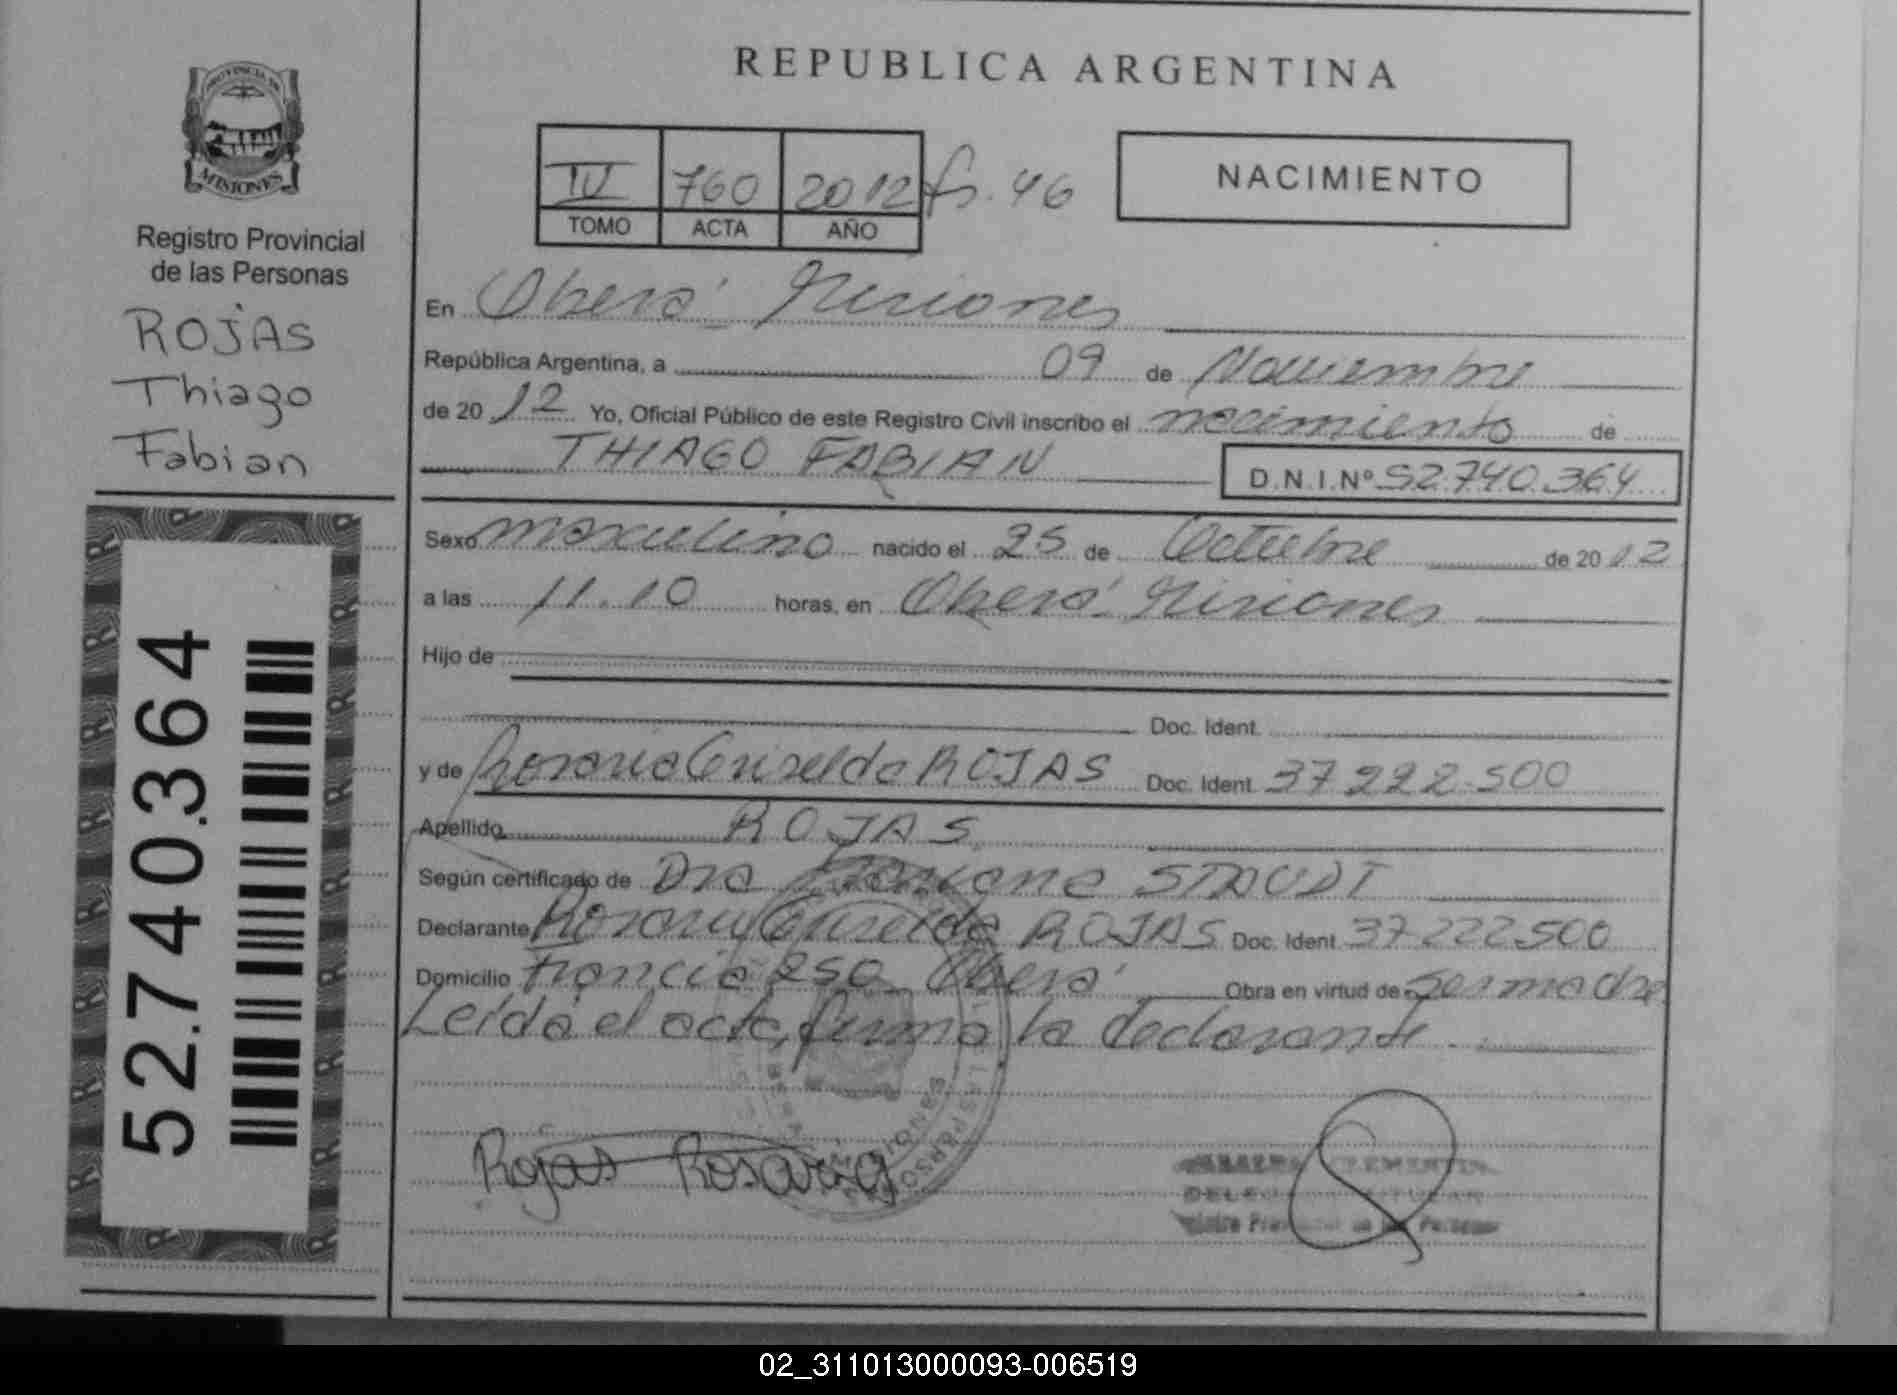 REPUBLICA ARGENTINA
PROVINCIA DE
MISIONES
Registro Provincial
de las Personas
ROJAS
Thiago
Fabian
52.740.364
IV 760 2012 fs. 46
TOMO ACTA AÑO
NACIMIENTO
En Oberá Misiones
República Argentina, a 09 de Noviembre
de 2012 Yo, Oficial Público de este Registro Civil inscribo el nacimiento de
THIAGO FABIAN D.N.I.Nº 52.740.364
Sexo masculino nacido el 25 de Octubre de 2012
a las 11.10 horas, en Oberá Misiones
Hijo de
Doc. Ident.
y de Rosaria Griselda ROJAS Doc. Ident. 37.222.500
Apellido ROJAS
Según certificado de Dra STAUDT
Declarante Rosaria Griselda ROJAS Doc. Ident. 37.222.500
Domicilio Francia 250 Oberá Obra en virtud de ser madre
Leída el acta, firma la declarante.
Rojas Rosaria
CLEMENTIN
02_311013000093-006519